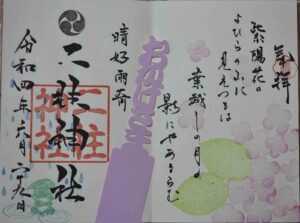 奉拝
紫陽花の
よひらの山に
見えつるは
葉越しの月の
影にやあるらむ
晴好雨奇
二柱神社
二柱
神社
令和四年六月九日